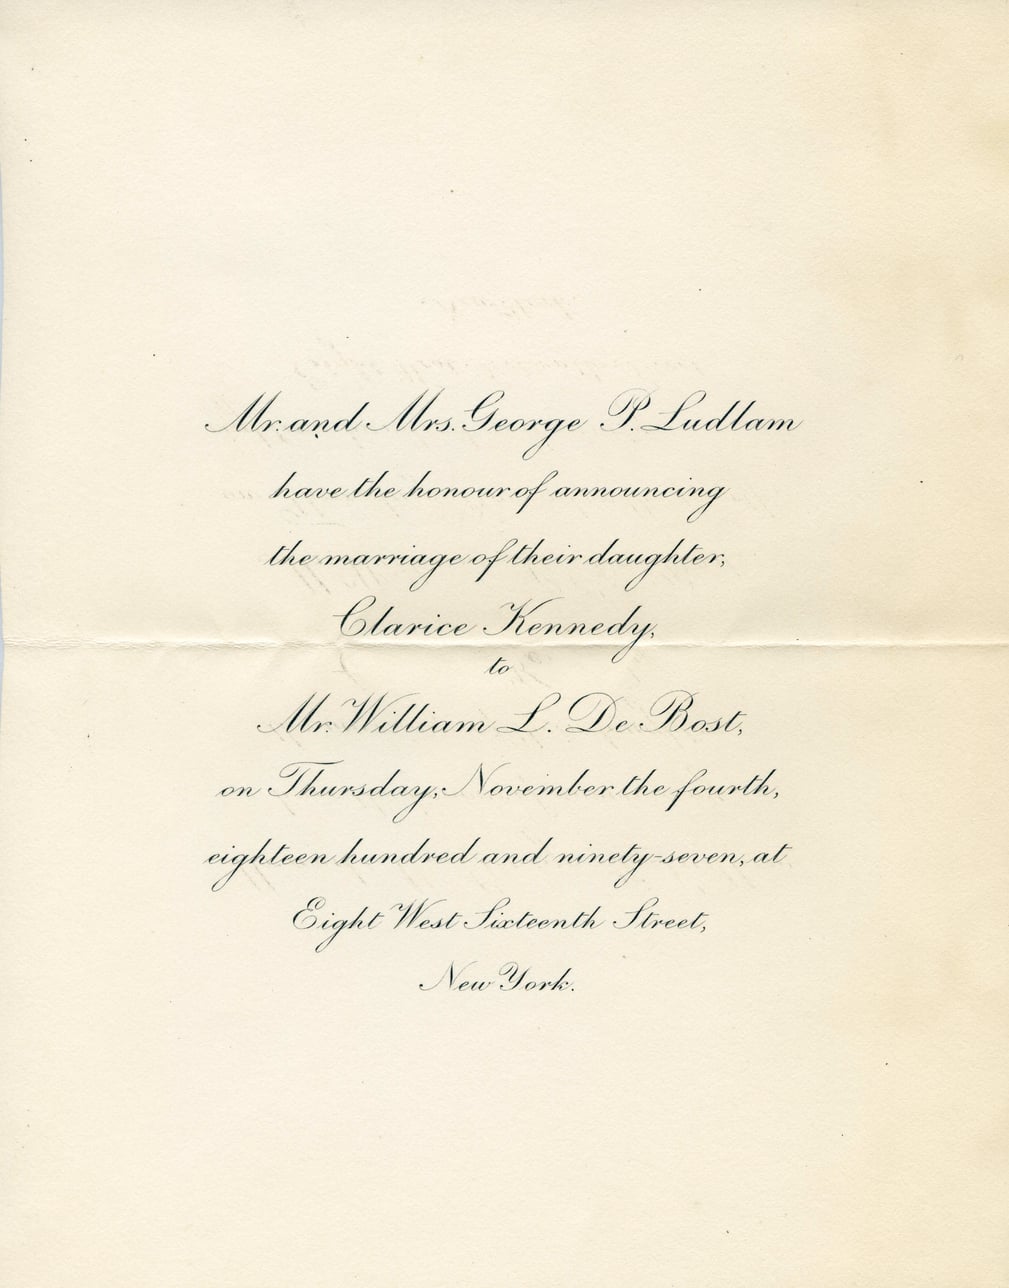 Mr. and Mrs. George P. Ludlam
have the honour of announcing
the marriage of their daughter,
Clarice Kennedy,
to
Mr. William L. De Bost,
on Thursday, November the fourth,
eighteen hundred and ninety-seven, at
Eight West Sixteenth Street,
New York.